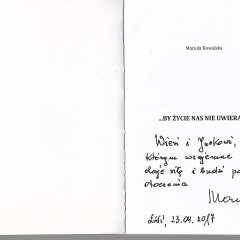 Mariola Kowalska
...BY ŻYCIE NAS NIE UWIERA
Wiesi i Jackowi,
którym wzajemne
daje siłę i budzi po
otoczenia
Łódź, 23.04.2017